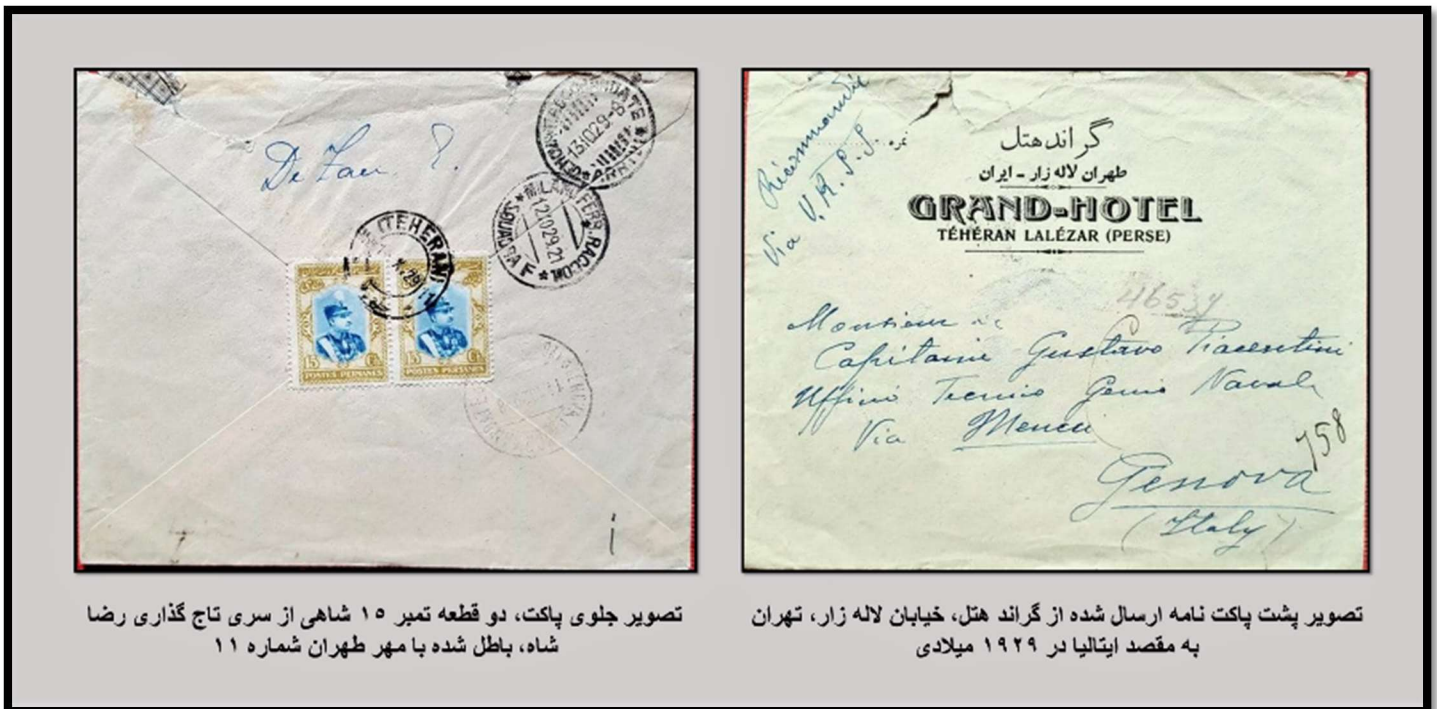 De Zan E.
RACCOMANDATE
13.10.29-8
ARRIVI
MILANO FERR. RACCOM.
12.10.29.21
SQUADRA F
(TEHERAN)
15 Ch. 15 Ch.
POSTES PERSANES POSTES PERSANES
GENOVA
تصویر جلوی پاکت، دو قطعه تمبر ۱۵ شاهی از سری تاج گذاری رضا
شاه، باطل شده با مهر طهران شماره ۱۱
Récommandée
Via U.R.S.S.
نمره
گراند هتل
طهران لاله زار - ایران
GRAND-HOTEL
TÉHÉRAN LALÉZAR (PERSE)
4653
Monsieur
Capitaine Gustavo Piacentini
Ufficio Tecnico Genio Navale
Via
Genova
(Italy)
758
تصویر پشت پاکت نامه ارسال شده از گراند هتل، خیابان لاله زار، تهران
به مقصد ایتالیا در ۱۹۲۹ میلادی